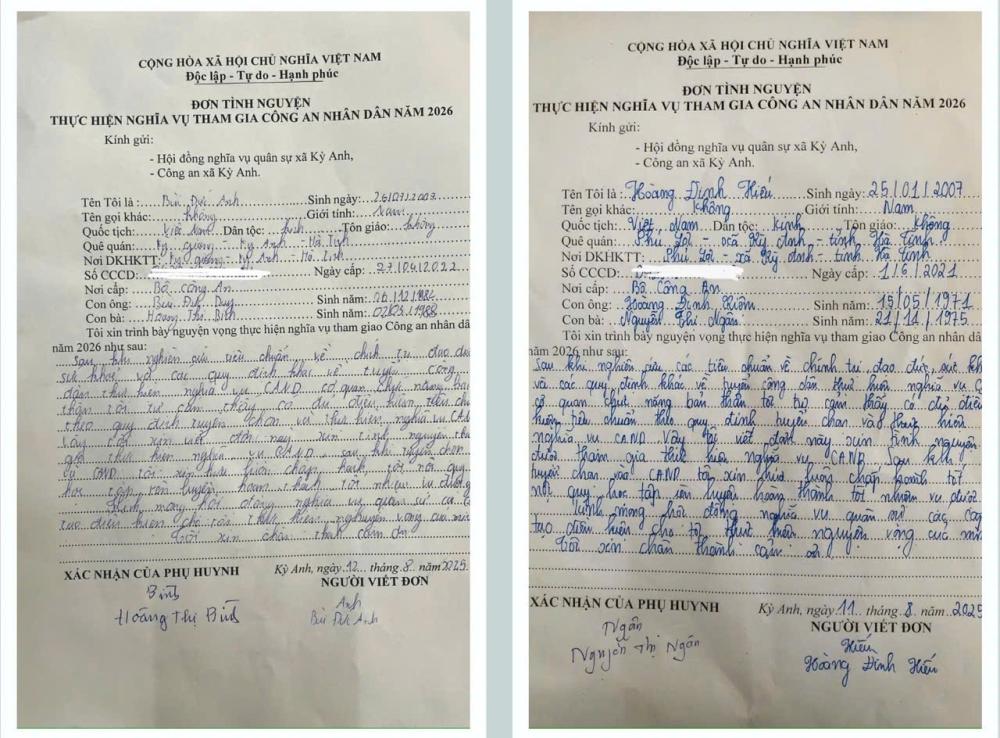 CỘNG HÒA XÃ HỘI CHỦ NGHĨA VIỆT NAM
Độc lập - Tự do - Hạnh phúc
ĐƠN TÌNH NGUYỆN
THỰC HIỆN NGHĨA VỤ THAM GIA CÔNG AN NHÂN DÂN NĂM 2026
Kính gửi:
- Hội đồng nghĩa vụ quân sự xã Kỳ Anh,
- Công an xã Kỳ Anh.
Tên Tôi là : Bùi Đức Anh Sinh ngày:
Tên gọi khác: không Giới tính: Nam
Quốc tịch: Việt Nam Dân tộc: kinh Tôn giáo: không
Quê quán: Kỳ Anh - Hà Tĩnh
Nơi DKHKTT: Kỳ Anh - Hà Tĩnh
Số CCCD: Ngày cấp: 27/04/2022
Nơi cấp: Bộ Công An
Con ông: Bùi Đức Duy Sinh năm: 06/12/1984
Con bà: Hoàng Thị Bình Sinh năm: 02/03/1988
Tôi xin trình bày nguyện vọng thực hiện nghĩa vụ tham giao Công an nhân dâ
năm 2026 như sau:
Sau khi nghiên cứu tiêu chuẩn về chính trị đạo đức
sức khỏe và các quy định khác về tuyển công
dân thực hiện nghĩa vụ CAND cơ quan chức năng bản
thân tôi tự cảm thấy có đủ điều kiện tiêu ch
theo quy định tuyển chọn và thực hiện nghĩa vụ CAND
vậy tôi xin viết đơn này xin tình nguyện th
gia thực hiện nghĩa vụ CAND sau khi tuyển chọn
CAND tôi xin hứa luôn chấp hành tốt nội quy
học tập rèn luyện hoàn thành tốt nhiệm vụ được
mong hội đồng nghĩa vụ quân sự cá
tạo điều kiện cho tôi thực hiện nguyện vọng của mìn
Tôi xin chân thành cảm ơn
Kỳ Anh, ngày 12 tháng 8 năm 2025
XÁC NHẬN CỦA PHỤ HUYNH NGƯỜI VIẾT ĐƠN
Bình Anh
Hoàng Thị Bình Bùi Đức Anh
CỘNG HÒA XÃ HỘI CHỦ NGHĨA VIỆT NAM
Độc lập - Tự do - Hạnh phúc
ĐƠN TÌNH NGUYỆN
THỰC HIỆN NGHĨA VỤ THAM GIA CÔNG AN NHÂN DÂN NĂM 2026
Kính gửi:
- Hội đồng nghĩa vụ quân sự xã Kỳ Anh,
- Công an xã Kỳ Anh.
Tên Tôi là : Hoàng Đình Hiếu Sinh ngày: 25/01/2007
Tên gọi khác: không Giới tính: Nam
Quốc tịch: Việt Nam Dân tộc: kinh Tôn giáo: không
Quê quán: Phú Lợi - xã Kỳ Anh - tỉnh Hà Tĩnh
Nơi DKHKTT: Phú Lợi - xã Kỳ Anh - tỉnh Hà Tĩnh
Số CCCD: Ngày cấp: 1/6/2021
Nơi cấp: Bộ Công An
Con ông: Hoàng Đình Sinh năm: 15/05/1971
Con bà: Nguyễn Thị Ngân Sinh năm: 21/11/1975
Tôi xin trình bày nguyện vọng thực hiện nghĩa vụ tham giao Công an nhân dâ
năm 2026 như sau:
Sau khi nghiên cứu các tiêu chuẩn về chính trị đạo đức, sức khỏ
và các quy định khác về tuyển công dân thực hiện nghĩa vụ C
cơ quan chức năng bản thân tôi tự cảm thấy có đủ điều
tiêu chuẩn theo quy định tuyển chọn và thực hiện
nghĩa vụ CAND Vậy tôi viết đơn này xin tình nguyện
được tham gia thực hiện nghĩa vụ CAND Sau khi
tuyển chọn vào CAND tôi xin hứa luôn chấp hành tốt
nội quy học tập rèn luyện hoàn thành tốt nhiệm vụ được
Kính mong hội đồng nghĩa vụ quân sự các cấp
tạo điều kiện cho tôi thực hiện nguyện vọng của mìn
Tôi xin chân thành cảm ơn
Kỳ Anh, ngày 11 tháng 8 năm 2025
XÁC NHẬN CỦA PHỤ HUYNH NGƯỜI VIẾT ĐƠN
Ngân Hiếu
Nguyễn Thị Ngân Hoàng Đình Hiếu